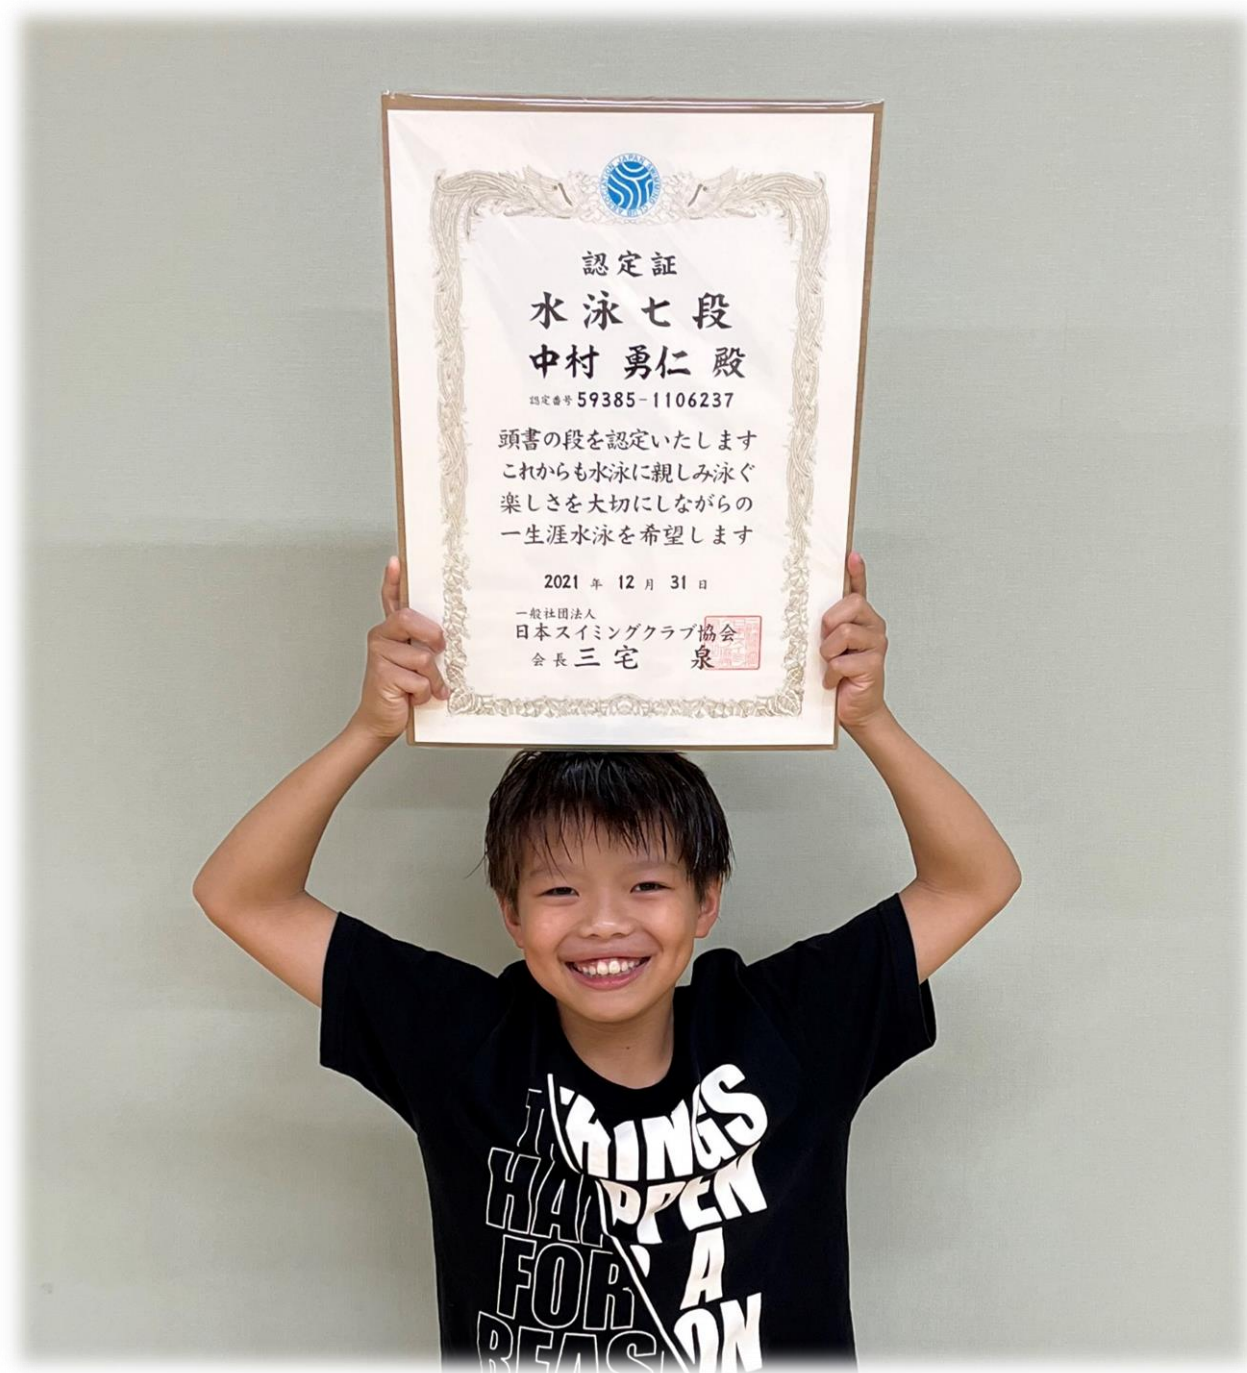 認定証
水泳七段
中村 勇仁 殿
認定番号 59385-1106237
頭書の段を認定いたします
これからも水泳に親しみ泳ぐ
楽しさを大切にしながらの
一生涯水泳を希望します
2021 年 12 月 31 日
一般社団法人
日本スイミングクラブ協会
会長 三宅 泉
THINGS
HAPPEN
FOR A
REASON